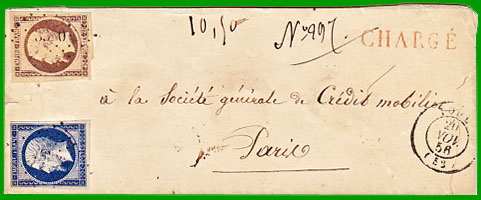 10,50
N° 997
CHARGÉ
à la Société générale de Crédit mobilier
Paris
20
NOV.
56
(52)